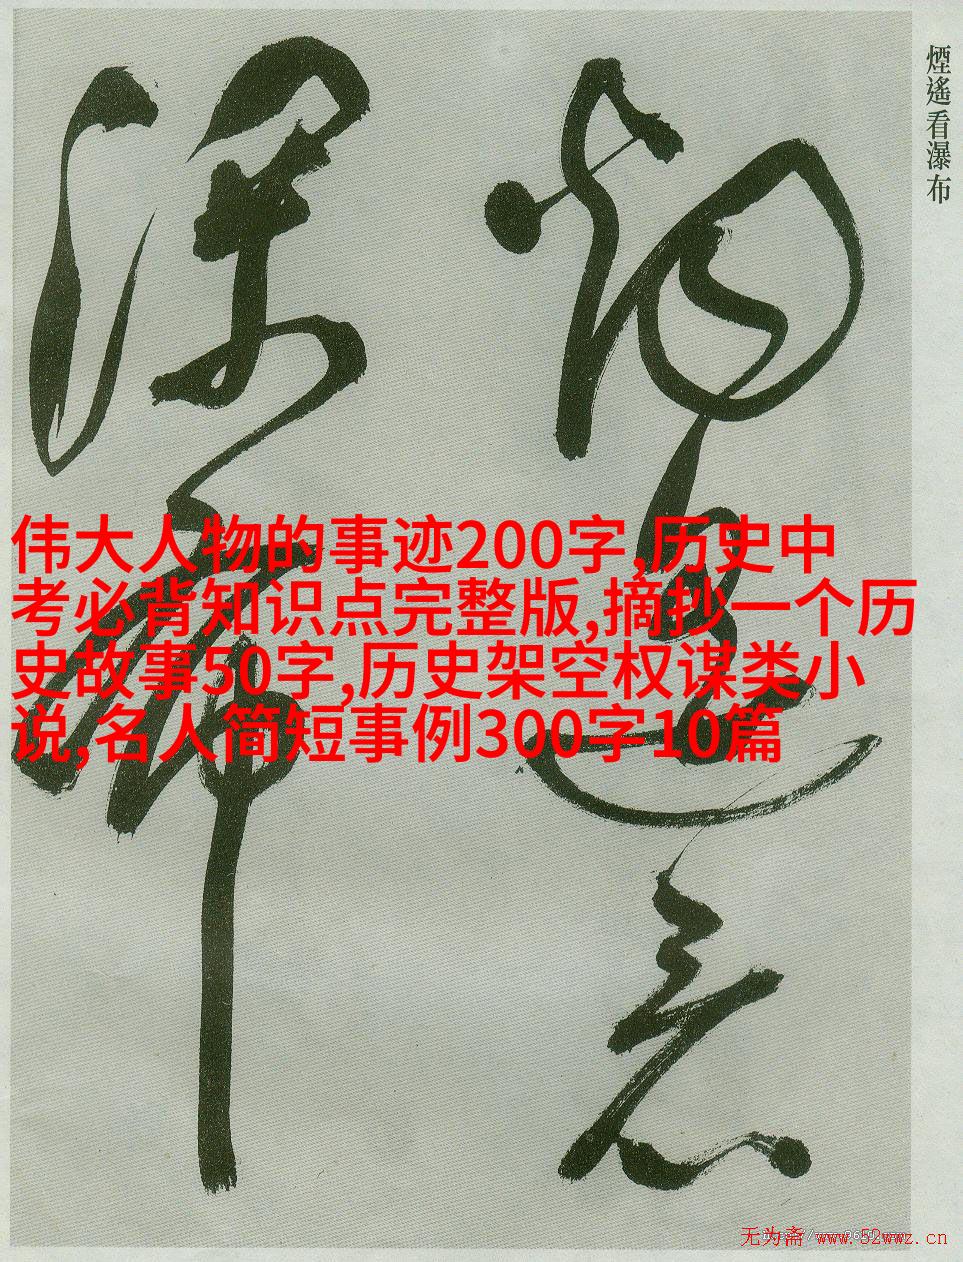 煙遙看瀑布
伟大人物的事迹200字,历史中
考必背知识点完整版,摘抄一个历
史故事50字,历史架空权谋类小
说,名人简短事例300字10篇
无为斋 www.52wwz.cn